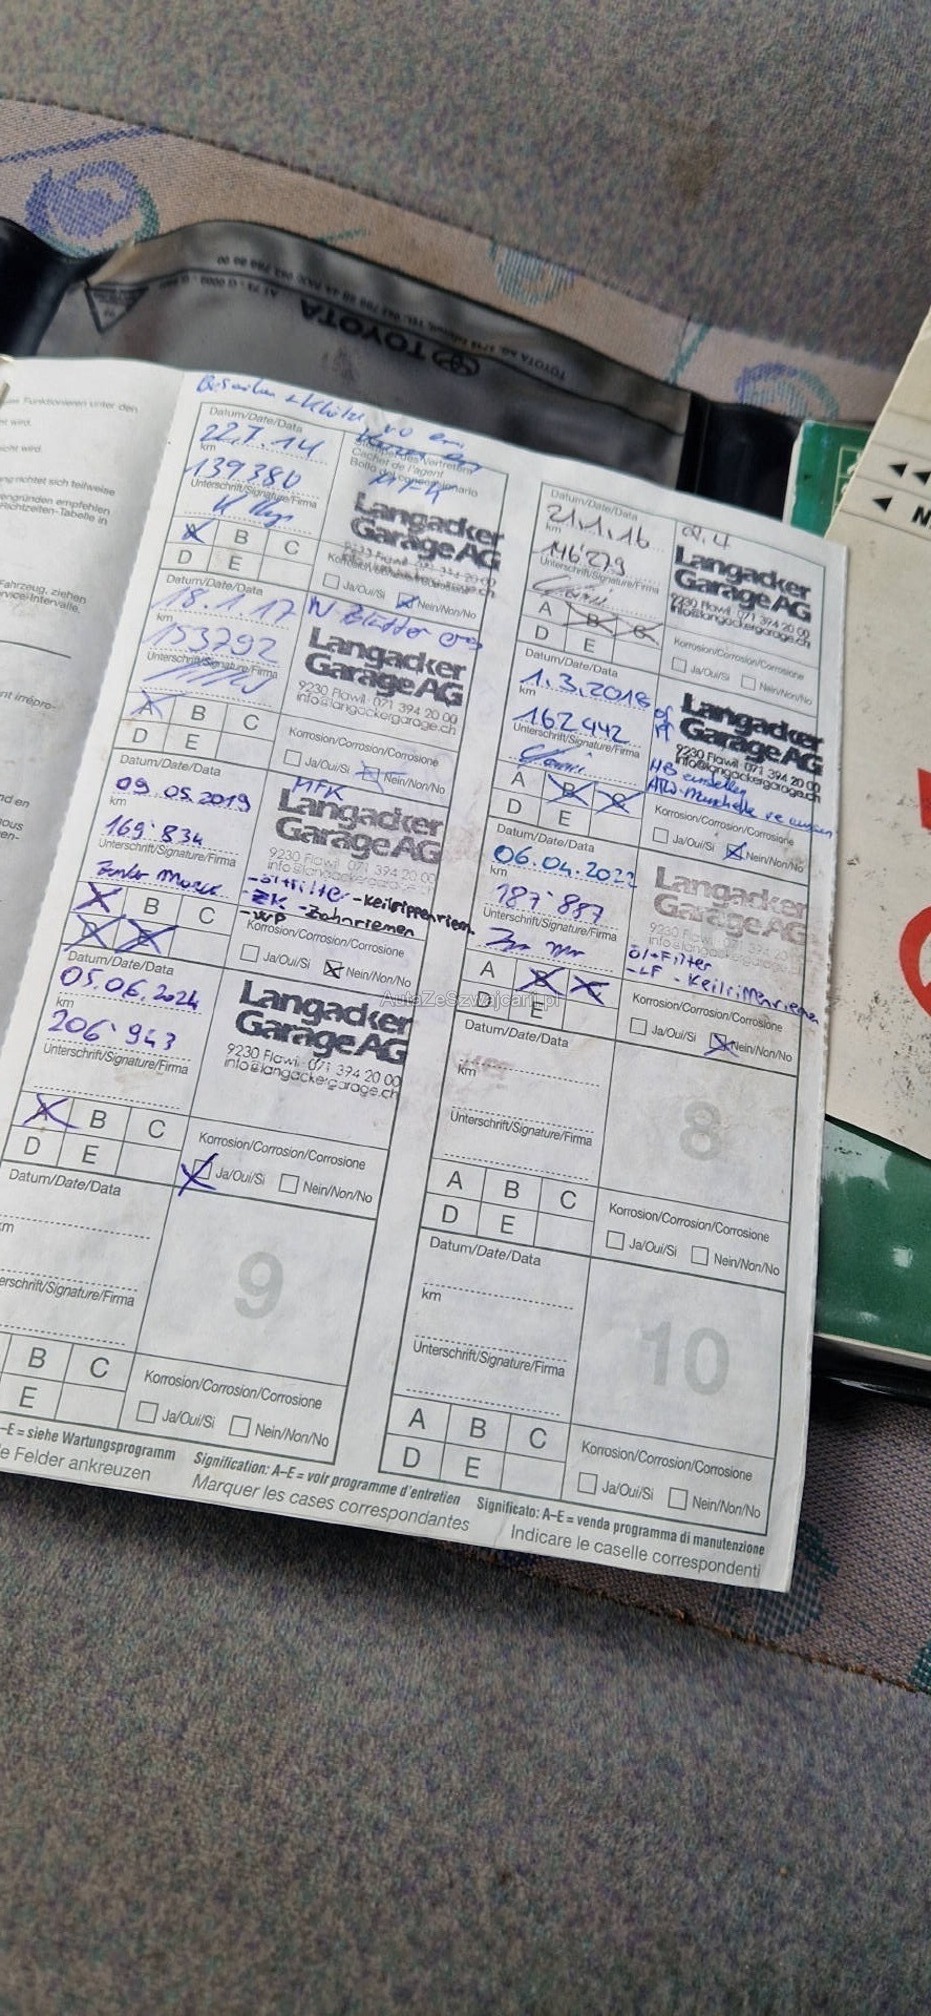 TOYOTA
TOYOTA AG, 5745 Safenwil, TEL. 062 788 88 00
Datum/Date/Data
22.7.14
km
139380
Unterschrift/Signature/Firma
A B C
D E
MFK
Langacker
Garage AG
9230 Flawil 071 394 20 00
Korrosion/Corrosion/Corrosione
Ja/Oui/Si Nein/Non/No
Datum/Date/Data
21.1.16
km
146'279
Unterschrift/Signature/Firma
A B C
D E
Langacker
Garage AG
9230 Flawil 071 394 20 00
info@langackergarage.ch
Korrosion/Corrosion/Corrosione
Ja/Oui/Si Nein/Non/No
Datum/Date/Data
18.1.17
km
153792
Unterschrift/Signature/Firma
A B C
D E
Langacker
Garage AG
9230 Flawil 071 394 20 00
info@langackergarage.ch
Korrosion/Corrosion/Corrosione
Ja/Oui/Si Nein/Non/No
Datum/Date/Data
1.3.2018
km
162442
Unterschrift/Signature/Firma
A B C
D E
Langacker
Garage AG
9230 Flawil 071 394 20 00
info@langackergarage.ch
Korrosion/Corrosion/Corrosione
Ja/Oui/Si Nein/Non/No
Datum/Date/Data
09.05.2019
km
169'834
Unterschrift/Signature/Firma
A B C
D E
MFK
Langacker
Garage AG
9230 Flawil 071 394 20 00
info@langackergarage.ch
- Ölfilter - Keilrippenriemen
- ZK - Zahnriemen
- WP
Korrosion/Corrosion/Corrosione
Ja/Oui/Si Nein/Non/No
Datum/Date/Data
06.04.2022
km
187'887
Unterschrift/Signature/Firma
A B C
D E
Langacker
Garage AG
9230 Flawil 071 394 20 00
Öl+Filter
- LF - Keilrippenriemen
Korrosion/Corrosion/Corrosione
Ja/Oui/Si Nein/Non/No
Datum/Date/Data
05.06.2024
km
206'943
Unterschrift/Signature/Firma
A B C
D E
Langacker
Garage AG
9230 Flawil 071 394 20 00
info@langackergarage.ch
Korrosion/Corrosion/Corrosione
Ja/Oui/Si Nein/Non/No
Datum/Date/Data
km
Unterschrift/Signature/Firma
8
A B C
D E
Korrosion/Corrosion/Corrosione
Ja/Oui/Si Nein/Non/No
Datum/Date/Data
km
erschrift/Signature/Firma
9
B C
E
Korrosion/Corrosion/Corrosione
Ja/Oui/Si Nein/Non/No
Datum/Date/Data
km
Unterschrift/Signature/Firma
10
A B C
D E
Korrosion/Corrosion/Corrosione
Ja/Oui/Si Nein/Non/No
–E = siehe Wartungsprogramm Signification: A–E = voir programme d'entretien Significato: A–E = venda programma di manutenzione
e Felder ankreuzen Marquer les cases correspondantes Indicare le caselle correspondenti
AutaZeSzwajcarii.pl